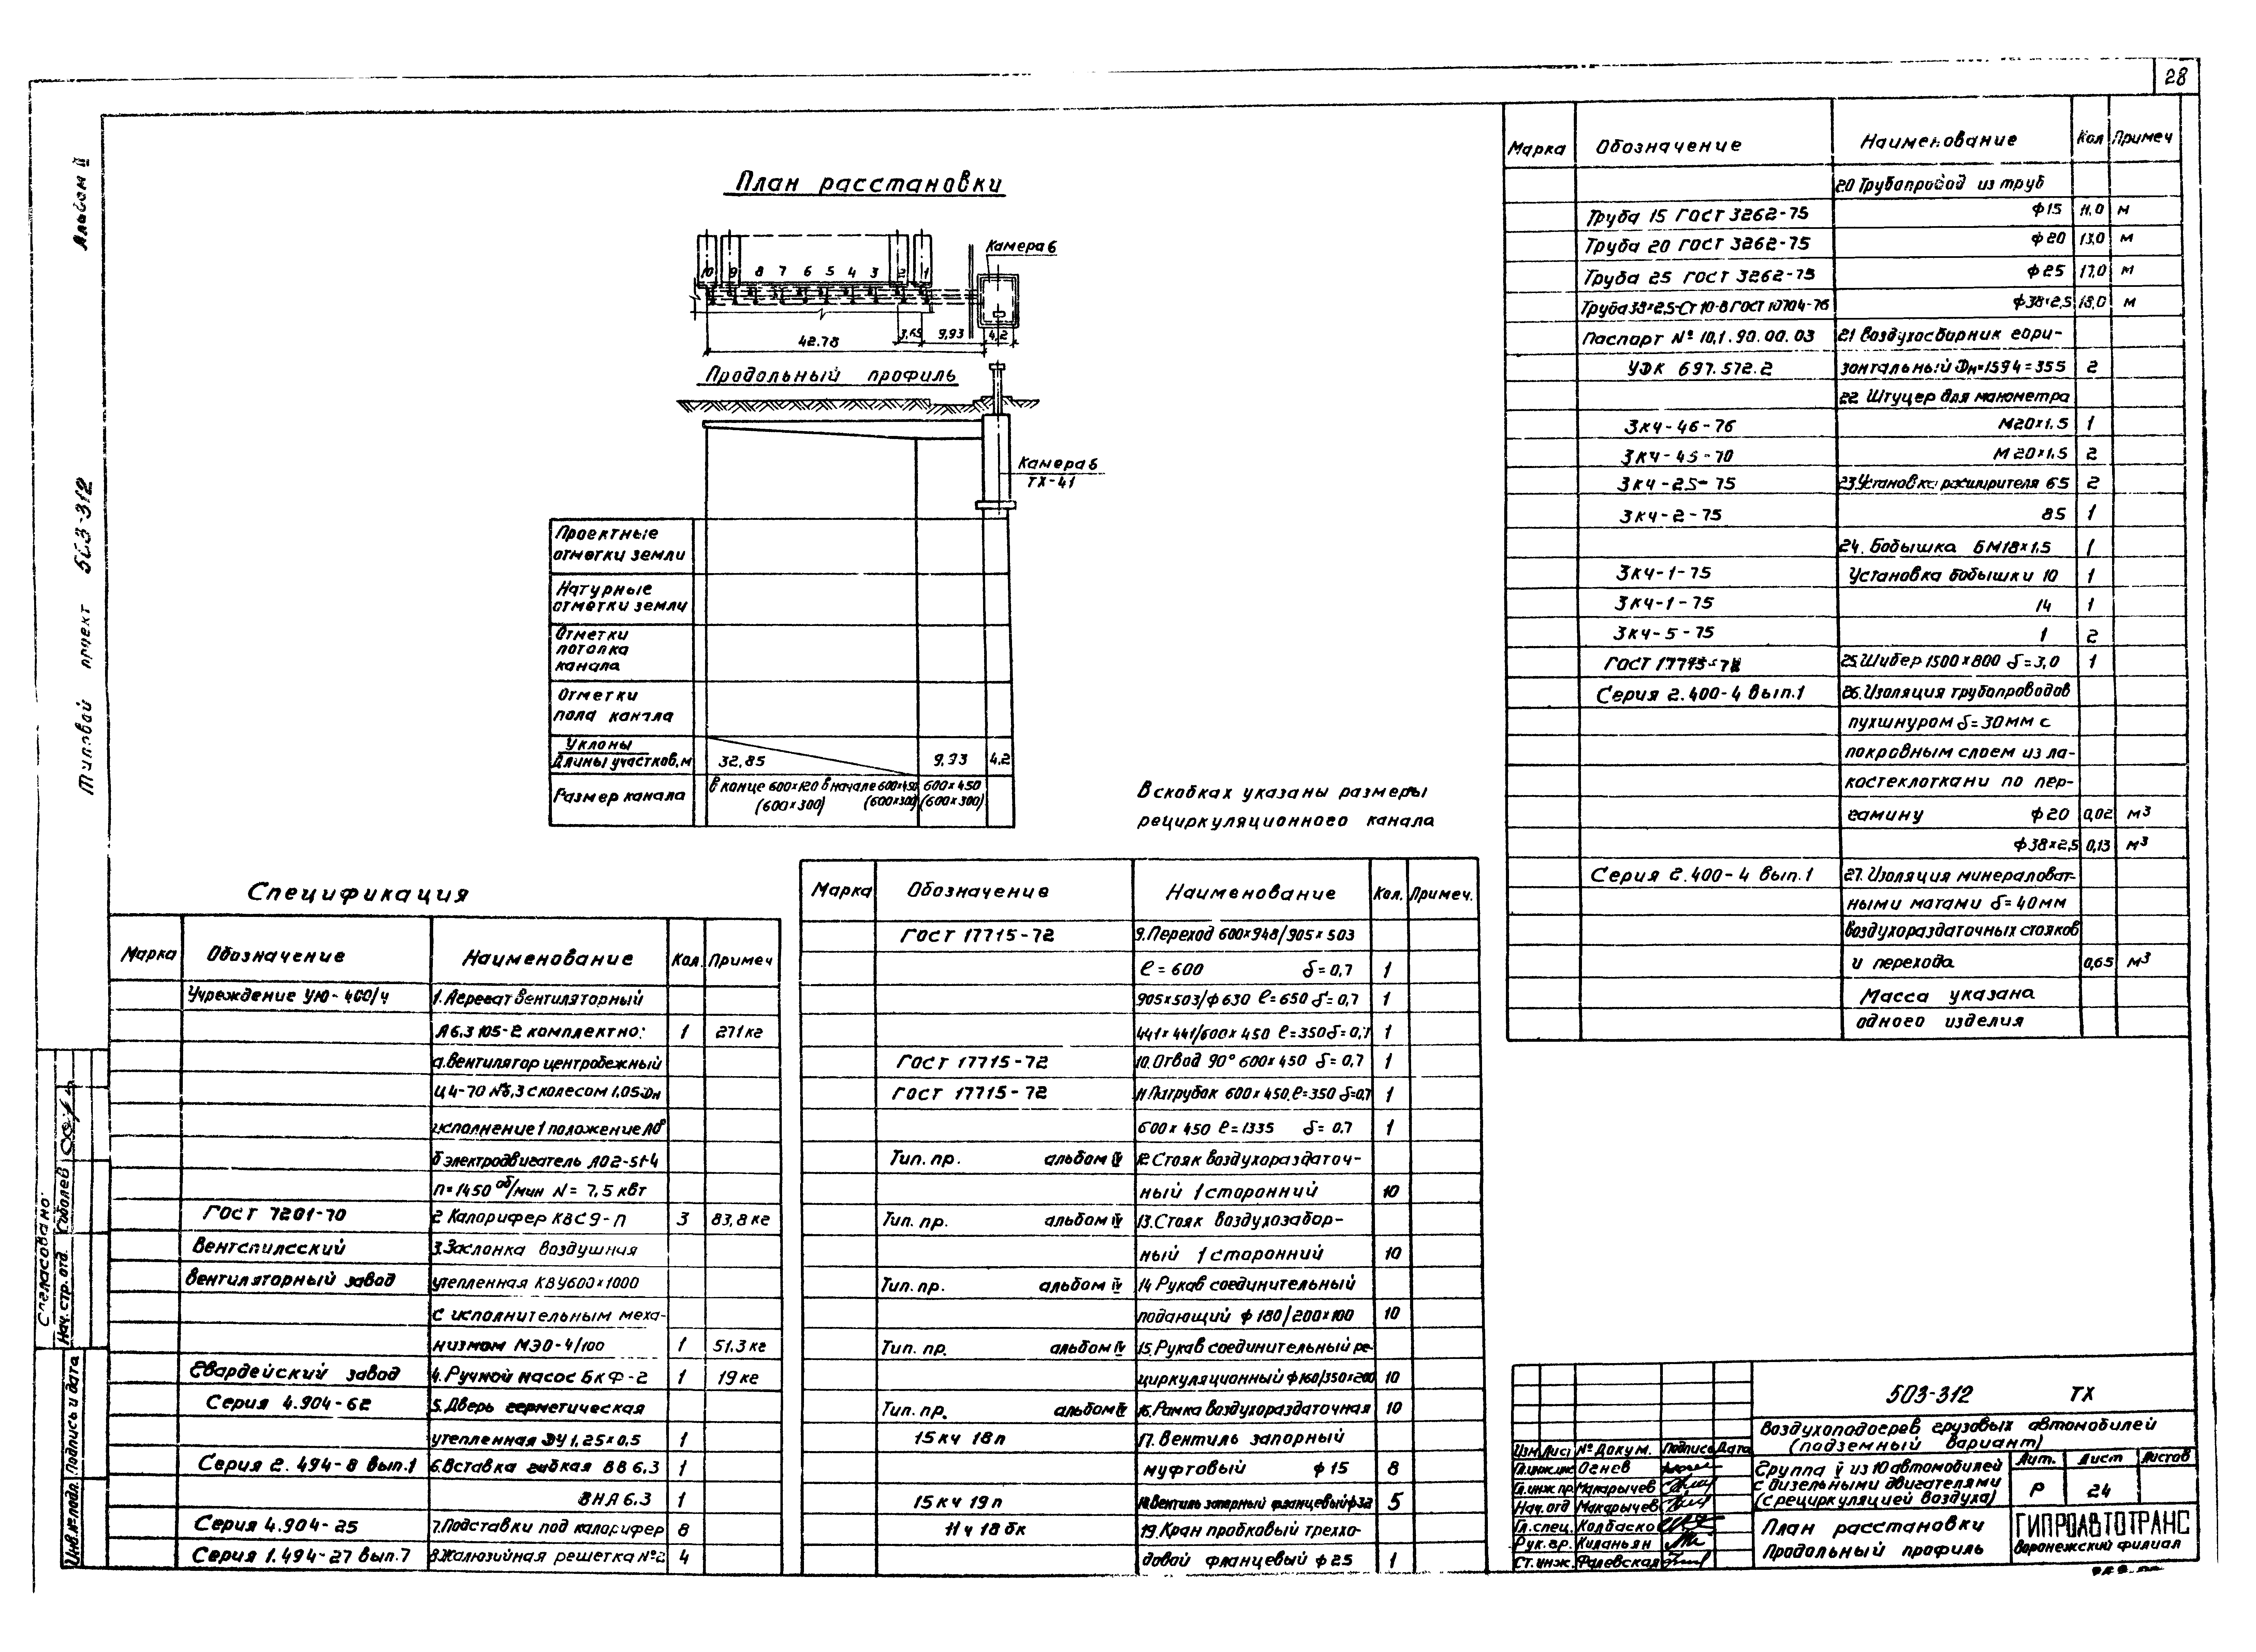 28
Альбом II
Типовой проект 503-312
План расстановки
Камера 6
10 9 8 7 6 5 4 3 2 1
42.78
3,65
9,93
4,2
Продольный профиль
Камера 6
ТХ-41
Проектные
отметки земли
Натурные
отметки земли
Отметки
потолка
канала
Отметки
пола канала
Уклоны
Длины участков,м 32,85 9,93 4,2
Размер канала в конце 600×120 в начале 600×450 600×450
(600×300) (600×300) (600×300)
В скобках указаны размеры
рециркуляционного канала
Спецификация
Марка Обозначение Наименование Кол. Примеч
Учреждение УЮ-400/4 1. Агрегат вентиляторный
А6,3 105-2 комплектно: 1 271 кг
а. вентилятор центробежный
Ц4-70 №6,3 с колесом 1,05 Дн
исполнение 1 положение Л0°
б электродвигатель АО2-51-4
n=1450 об/мин N= 7,5 квт
ГОСТ 7201-70 2 Калорифер КВС9-П 3 83,8 кг
Вентспилсский 3. Заслонка воздушная
вентиляторный завод утепленная КВУ600×1000
с исполнительным меха-
низмом МЭО-4/100 1 51.3 кг
Гвардейский завод 4. Ручной насос БКФ-2 1 19 кг
Серия 4.904-62 5. Дверь герметическая
утепленная ДУ 1,25×0,5 1
Серия 2.494-8 вып.1 6. Вставка гибкая ВВ 6.3 1
ВНА 6.3 1
Серия 4.904-25 7. Подставки под калорифер 8
Серия 1.494-27 вып.7 8 Жалюзийная решетка №2 4
Марка Обозначение Наименование Кол. Примеч.
ГОСТ 17715-72 9. Переход 600×948/905×503
ℓ=600 δ=0,7 1
905×503/ф630 ℓ=650 δ=0,7 1
441×441/600×450 ℓ=350 δ=0,7 1
ГОСТ 17715-72 10. Отвод 90° 600×450 δ=0,7 1
ГОСТ 17715-72 11 Патрубок 600×450, ℓ=350 δ=0,7 1
600×450 ℓ=1335 δ=0.7 1
Тип. пр. альбом IV 12 Стояк воздухораздаточ-
ный 1 сторонний 10
Тип. пр. альбом IV 13. Стояк воздухозабор-
ный 1 сторонний 10
Тип. пр. альбом IV 14 Рукав соединительный
подающий ф180/200×100 10
Тип. пр. альбом IV 15. Рукав соединительный ре-
циркуляционный ф160/350×200 10
Тип. пр. альбом IV 16. Рамка воздухораздаточная 10
15 кч 18 п 17. Вентиль запорный
муфтовый ф15 8
15 кч 19 п 18. Вентиль запорный фланцевый ф32 5
11 ч 18 бк 19. Кран пробковый треххо-
довой фланцевый ф25 1
Марка Обозначение Наименование Кол Примеч
20 Трубопровод из труб
Труба 15 ГОСТ 3262-75 ф15 11,0 м
Труба 20 ГОСТ 3262-75 ф20 13,0 м
Труба 25 ГОСТ 3262-75 ф25 17,0 м
Труба 38×2,5-Ст 10-В ГОСТ 10704-76 ф38×2,5 18,0 м
Паспорт № 10,1.90.00.03 21 Воздухосборник гори-
УДК 697.572.2 зонтальный Дн=159 ℓ=355 2
22 Штуцер для манометра
ЗКЧ-46-76 М20×1,5 1
ЗКЧ-45-70 М20×1,5 2
ЗКЧ-25-75 23. Установка расширителя 65 2
ЗКЧ-2-75 85 1
24. Бобышка БМ18×1,5 1
ЗКЧ-1-75 Установка бобышки 10 1
ЗКЧ-1-75 14 1
ЗКЧ-5-75 1 2
ГОСТ 17715-72 25. Шибер 1500×800 δ=3,0 1
Серия 2.400-4 вып.1 26. Изоляция трубопроводов
пухшнуром δ=30 мм с
покровным слоем из ла-
костеклоткани по пер-
гамину ф20 0,02 м³
ф38×2,5 0,13 м³
Серия 2.400-4 вып.1 27. Изоляция минераловат-
ными матами δ=40 мм
воздухораздаточных стояков
и перехода 0,65 м³
Масса указана
одного изделия
503-312 ТХ
Воздухоподогрев грузовых автомобилей
(подземный вариант)
Изм. Лист № Докум. Подпись Дата
Гл.инж.инс Огнев
Гл.инж.пр. Макарычев
Нач. отд Макарычев
Гл. спец. Колбаско
Рук. гр. Киланьян
Ст. инж. Фалевская
Группа V из 10 автомобилей
с дизельными двигателями
(с рециркуляцией воздуха)
Лит. Лист Листов
Р 24
План расстановки
Продольный профиль
ГИПРОАВТОТРАНС
Воронежский филиал
Согласовано:
Нач. стр. отд. Соболев
Подпись и дата
Инв. № подл.